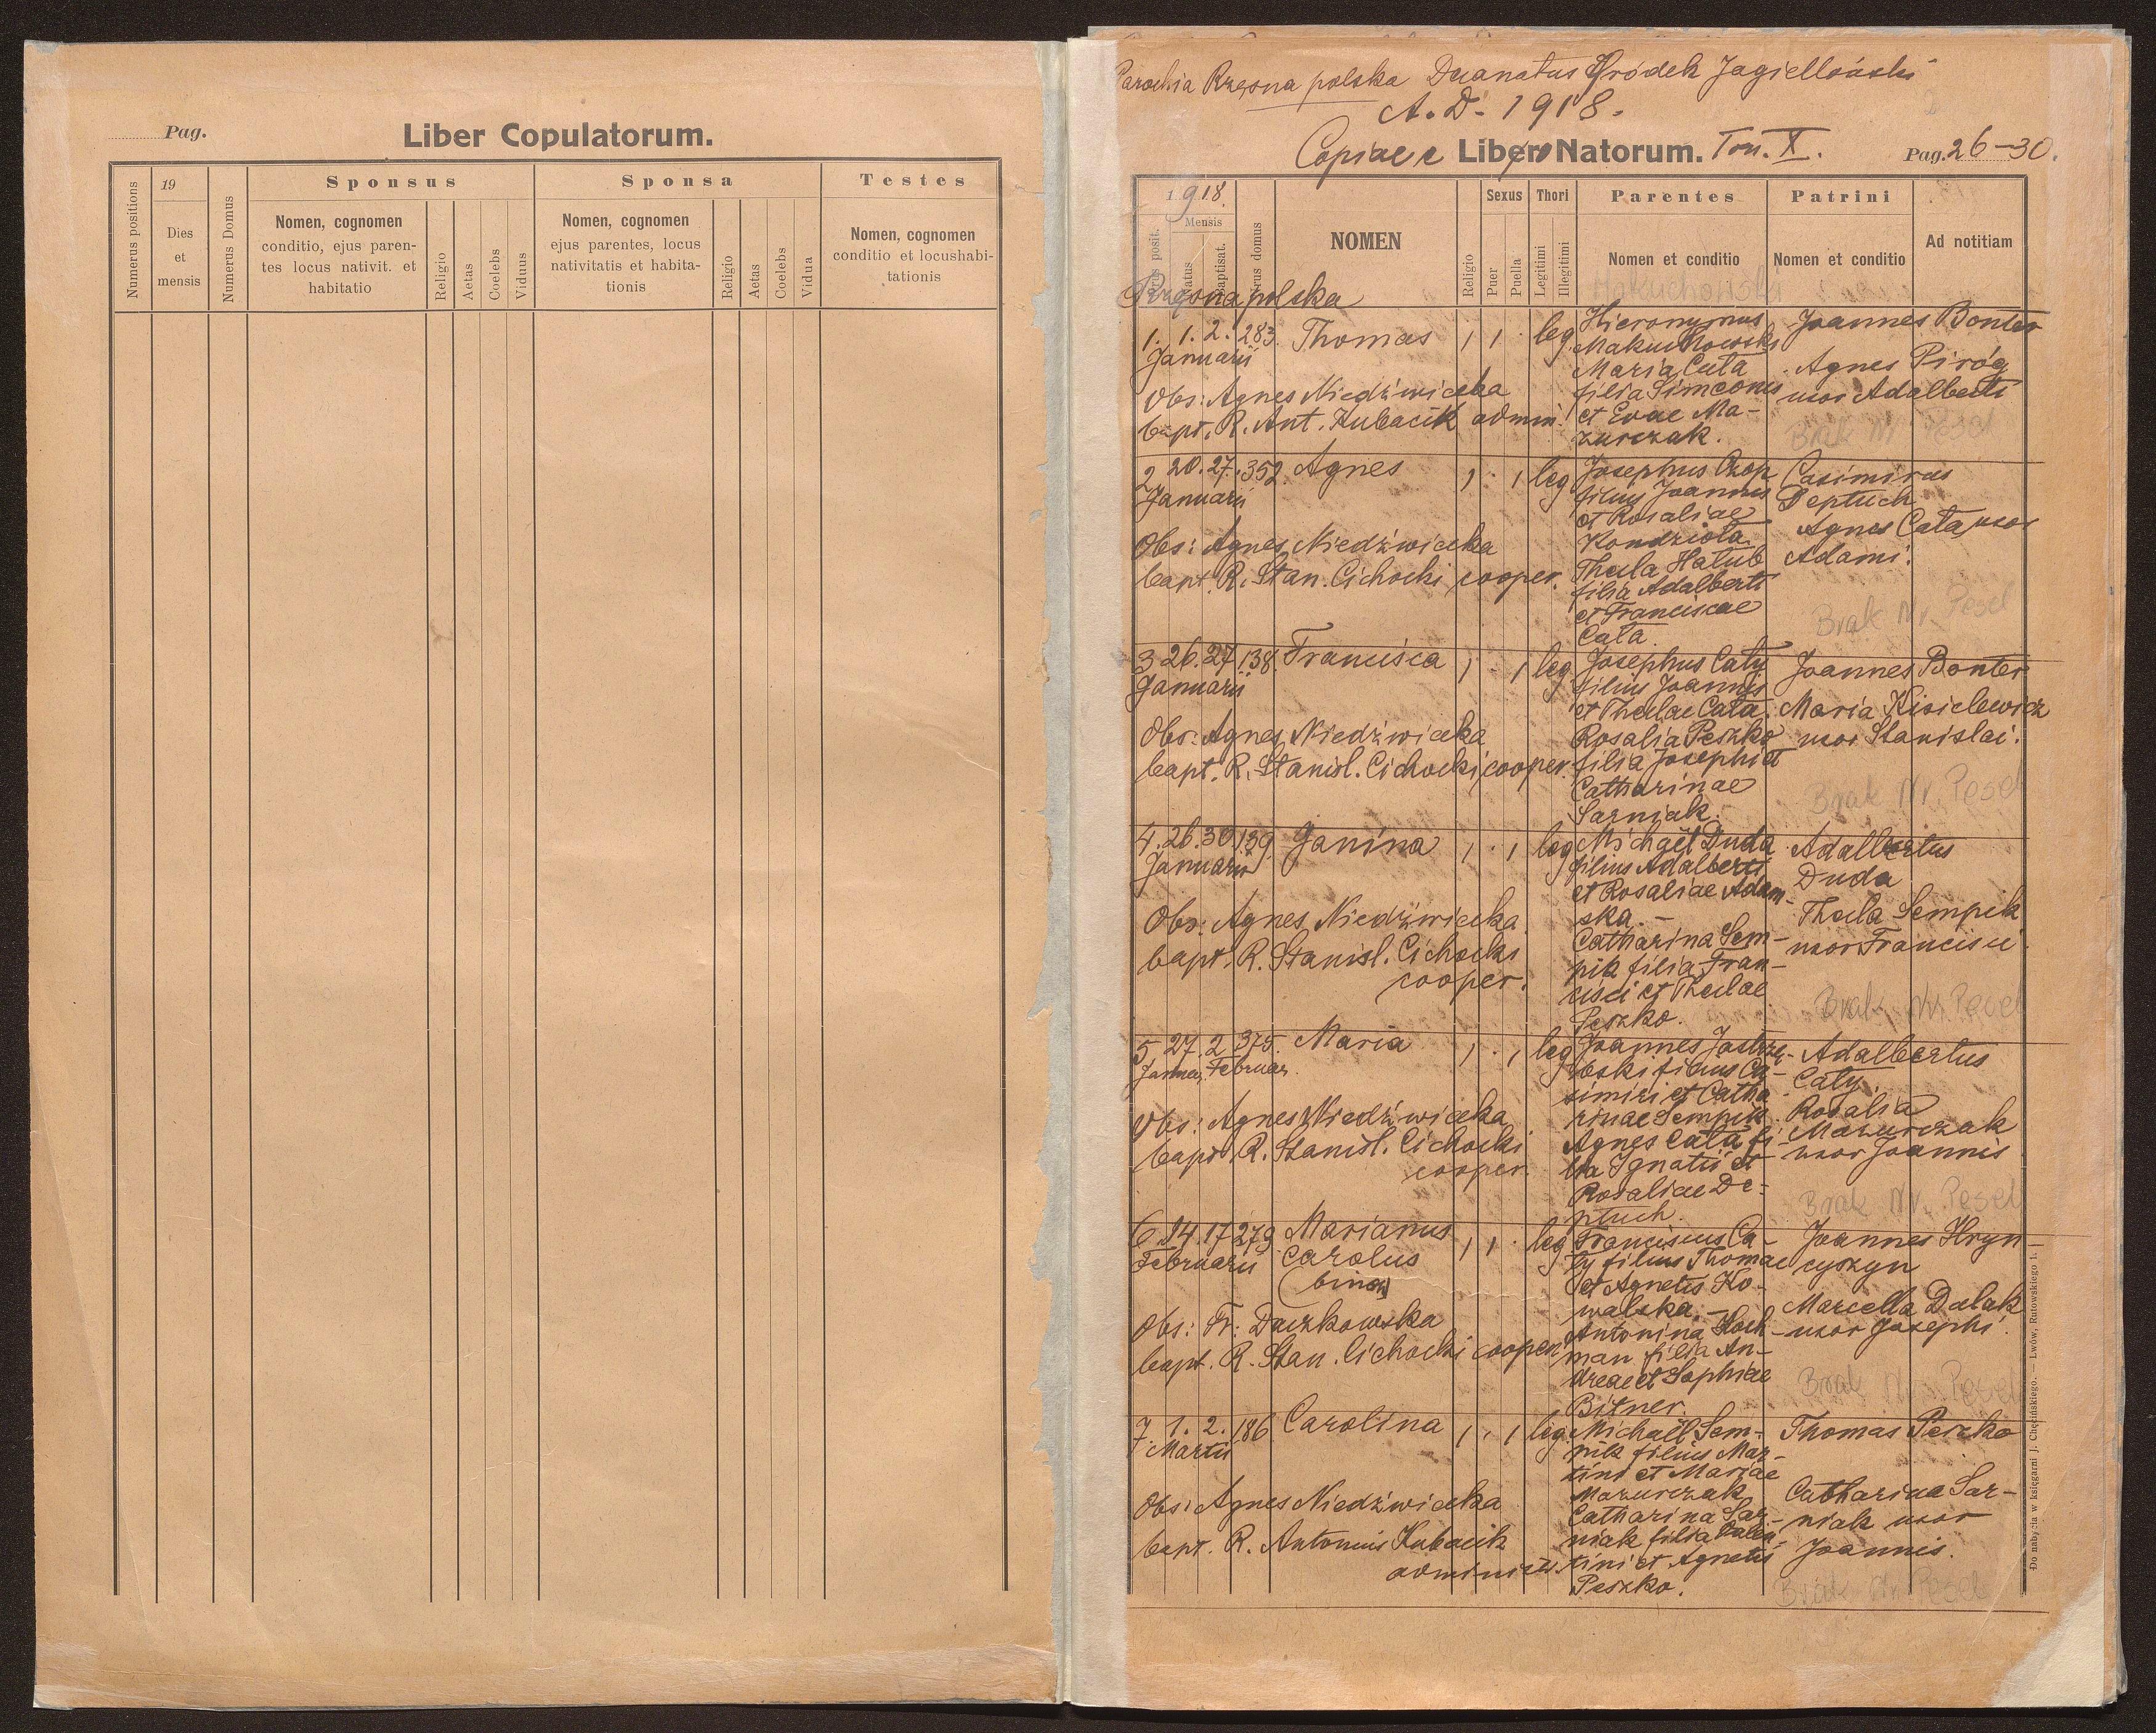 Pag.
Liber Copulatorum.
Numerus positionis
19
Dies
et
mensis
Numerus Domus
Sponsus
Nomen, cognomen
conditio, ejus paren-
tes locus nativit. et
habitatio
Religio
Aetas
Coelebs
Viduus
Sponsa
Nomen, cognomen
ejus parentes, locus
nativitatis et habita-
tionis
Religio
Aetas
Coelebs
Vidua
Testes
Nomen, cognomen
conditio et locushabi-
tationis
Parochia Rzęsna polska Decanatus Gródek Jagielloński
A. D. 1918.
Copia e Libro Natorum. Tom. X. Pag. 26-30.
1918.
Mensis
posit.
natus
baptisat.
domus
NOMEN
Religio
Sexus
Puer
Puella
Thori
Legitimi
Illegitimi
Parentes
Nomen et conditio
Patrini
Nomen et conditio
Ad notitiam
Rzęsna polska
1. 1. 2. 283. Thomas 1 1 . leg.
Januarii
Obs: Agnes Niedźwiecka
bapt. R. Ant. Kubacik admin.
Hieronymus
Makuchowski
Maria Cała
filia Simeonis
et Evae Ma-
zurczak.
Joannes Bonter
Agnes Piróg
uxor Adalberti
Brak Nr Pesel
2. 20. 27. 352. Agnes 1 . 1 leg
Januarii
Obs: Agnes Niedźwiecka
bapt. R. Stan. Cichocki cooper.
Josephus Czop
filius Joannis
et Rosaliae
Kondzioła.
Thecla Hałub
filia Adalberti
et Franciscae
Cała.
Casimirus
Deptuch
Agnes Cała, uxor
Adami.
Brak Nr. Pesel
3 26. 27 138. Francisca 1 . 1 leg.
Januarii
Obs: Agnes Niedźwiecka
bapt. R. Stanisl. Cichocki cooper.
Josephus Cały
filius Joannis
et Theclae Cała.
Rosalia Peszko
filia Josephi et
Catharinae
Sarniak.
Joannes Bonter
Maria Kisielewicz
uxor Stanislai.
Brak Nr. Pesel
4. 26. 30 139. Janina 1 . 1 leg
Januarii
Obs: Agnes Niedźwiecka.
bapt. R. Stanisl. Cichocki
cooper.
Michaël Duda
filius Adalberti
et Rosaliae Adam-
ska. -
Catharina Sem-
pik filia Fran-
cisci et Theclae
Peszko.
Adalbertus
Duda
Thecla Sempik
uxor Francisci.
Brak Nr. Pesel
5. 27. 2 375. Maria 1 . 1 leg
Januar. Februar.
Obs: Agnes Niedźwiecka
bapt. R. Stanisl. Cichocki
cooper.
Joannes Jastrzę-
bski filius Ca-
simiri et Catha-
rinae Sempik.
Agnes Cała fi-
lia Ignatii et
Rosaliae De-
ptuch.
Adalbertus
Cały.
Rosalia
Mazurczak
uxor Joannis
Brak Nr. Pesel
6. 14. 17 279. Marianus 1 1 . leg
Februarii Carolus
Obs: Fr. Daczkowska
bapt. R. Stan. Cichocki cooper.
Franciscus Ca-
ły filius Thomae
et Agnetis Ko-
walska. -
Antonina Hoch-
man filia An-
dreae et Sophiae
Bitner.
Joannes Hryn-
cyszyn
Marcella Dulak
uxor Josephi.
Brak Nr. Pesel
7 1. 2. 186 Carolina 1 . 1 leg.
Martii
Obs: Agnes Niedźwiecka
bapt. R. Antonius Kubacik
administr.
Michaël Sem-
pik filius Mar-
tini et Mariae
Mazurczak
Catharina Sar-
niak filia Valen-
tini et Agnetis
Peszko.
Thomas Peszko
Catharina Sar-
niak uxor
Joannis.
Brak Nr. Pesel
Do nabycia w księgarni J. Chęcińskiego. — Lwów, Rutowskiego 1.